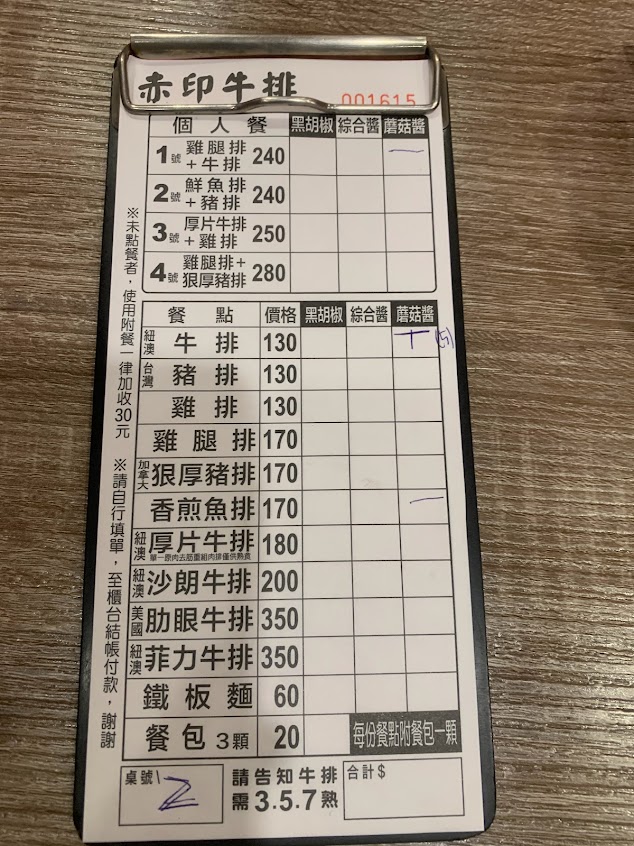 赤印牛排
001615
個人餐 黑胡椒 綜合醬 蘑菇醬
1號 雞腿排+牛排 240 一
2號 鮮魚排+豬排 240
3號 厚片牛排+雞排 250
4號 雞腿排+狠厚豬排 280
餐點 價格 黑胡椒 綜合醬 蘑菇醬
紐澳 牛排 130 丅 (5)
台灣 豬排 130
雞排 130
雞腿排 170
加拿大 狠厚豬排 170
香煎魚排 170 一
紐澳 厚片牛排 180
單一原肉去筋重組肉排僅供熟食
紐澳 沙朗牛排 200
美國 肋眼牛排 350
紐澳 菲力牛排 350
鐵板麵 60
餐包 3顆 20 每份餐點附餐包一顆
桌號 2
請告知牛排
需3.5.7熟
合計$
※未點餐者，使用附餐一律加收30元 ※請自行填單，至櫃台結帳付款，謝謝